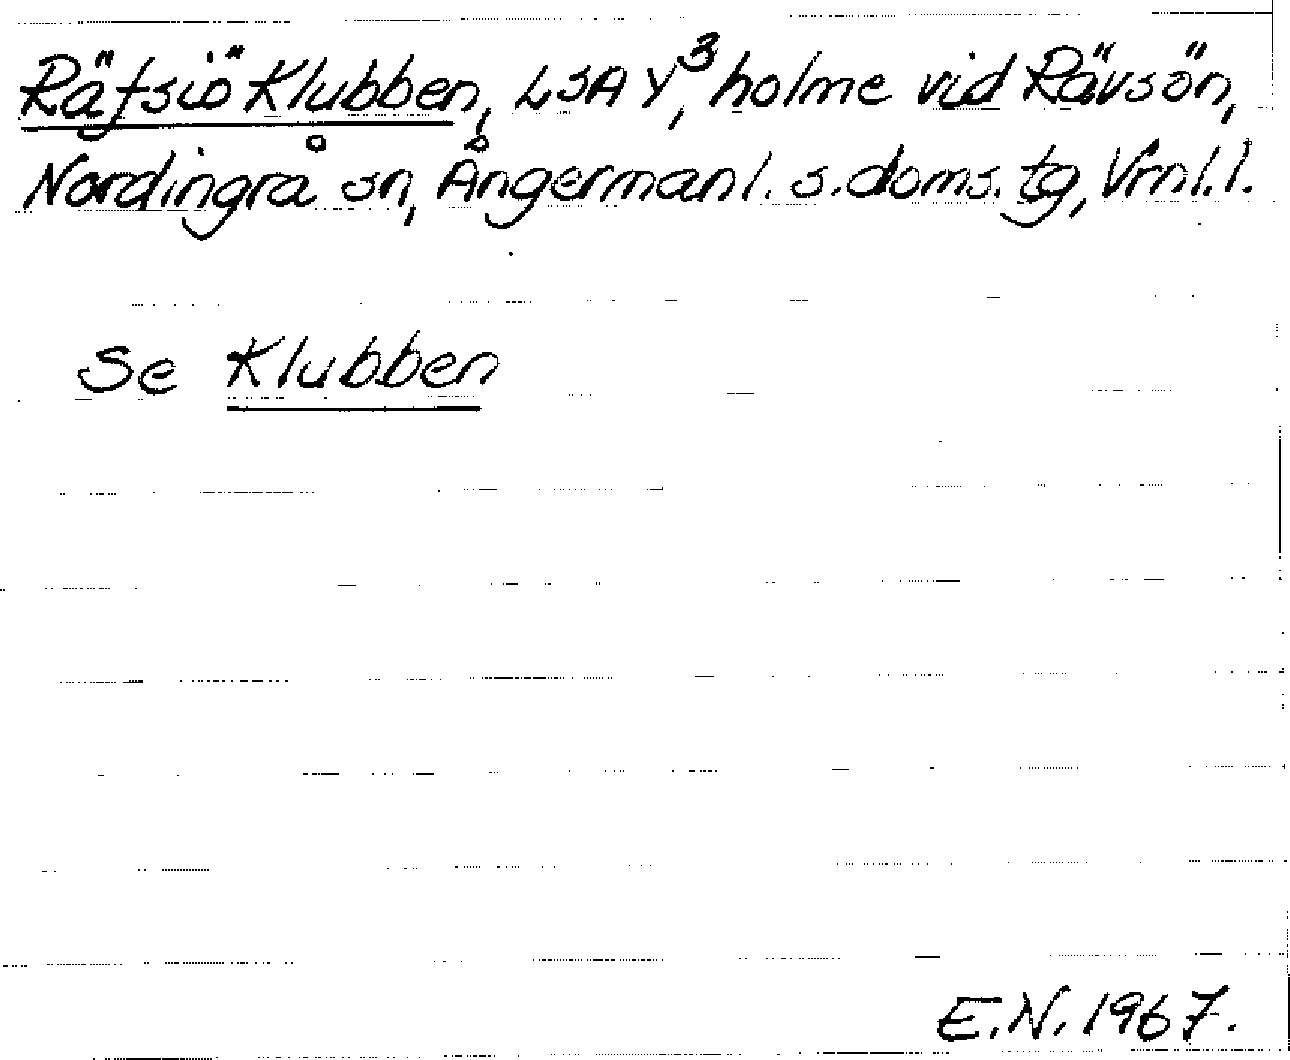 Räfsiö Klubben, LSA Y³, holme vid Rävsön,
Nordingrå sn, Ångermanl. s. doms. tg, Vrnl. l.
Se Klubben
E.N. 1967.